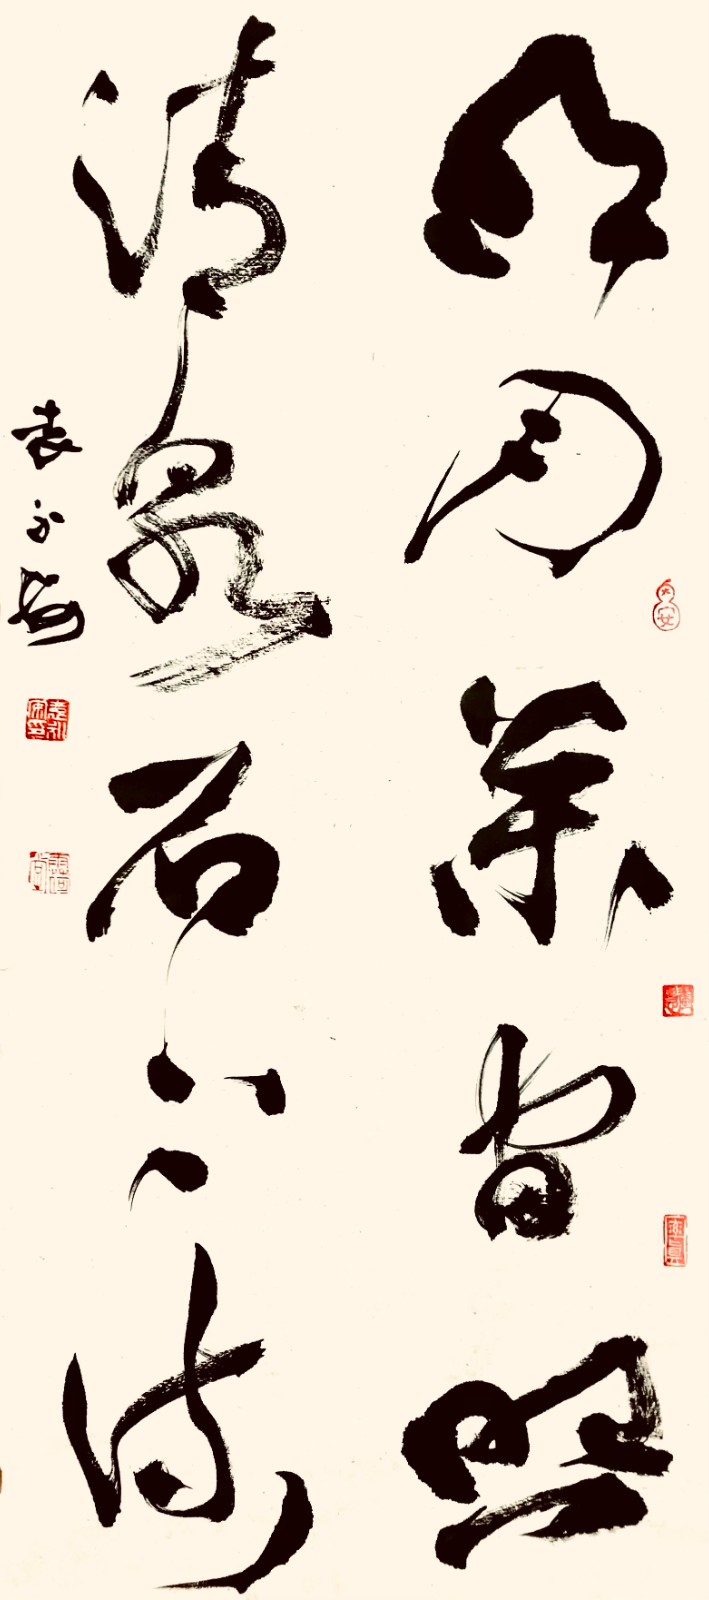 明月松间照
清泉石上流
袁